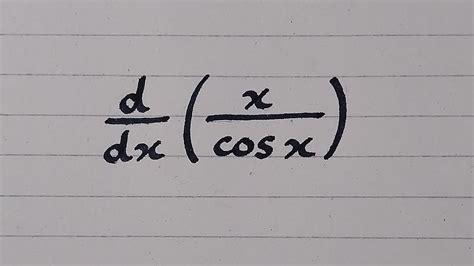 d/dx (x/cos x)